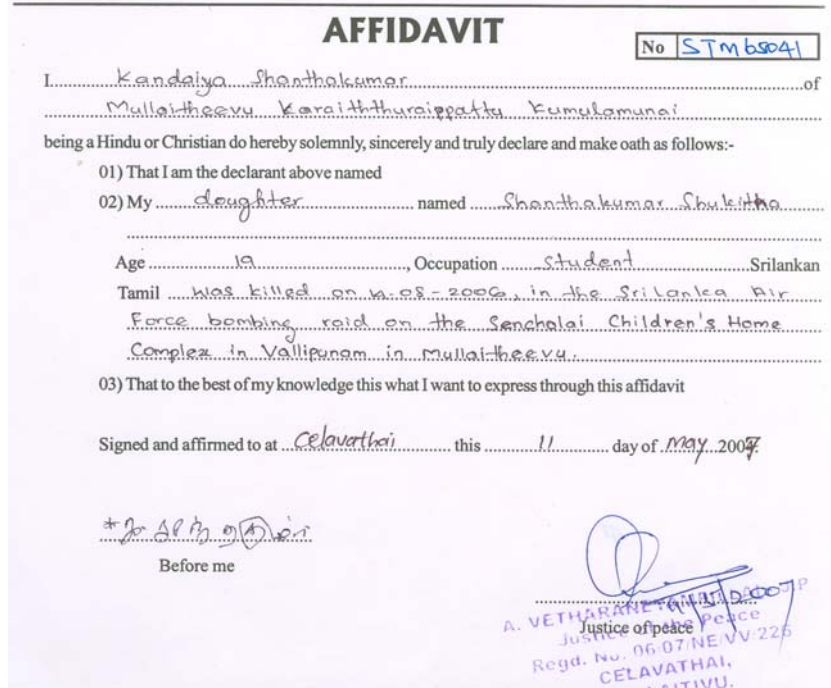 AFFIDAVIT
No STM65041
I Kandaiya Shanthakumar of
Mullaitheevu Karaiththuraippattu Kumulamunai
being a Hindu or Christian do hereby solemnly, sincerely and truly declare and make oath as follows:-
01) That I am the declarant above named
02) My doughter named Shanthakumar Shukitha
Age 19, Occupation Student Srilankan
Tamil was killed on 14-08-2006, in the Sri Lanka Air
Force bombing raid on the Sencholai Children's Home
Complex in Vallipunam in Mullaitheevu.
03) That to the best of my knowledge this what I want to express through this affidavit
Signed and affirmed to at Celavathai this 11 day of May 2007.
Before me
11/5/2007
Justice of peace
A. J.P
Justice of the Peace
Regd. No. 06/07/NE/VV/226
CELAVATHAI,